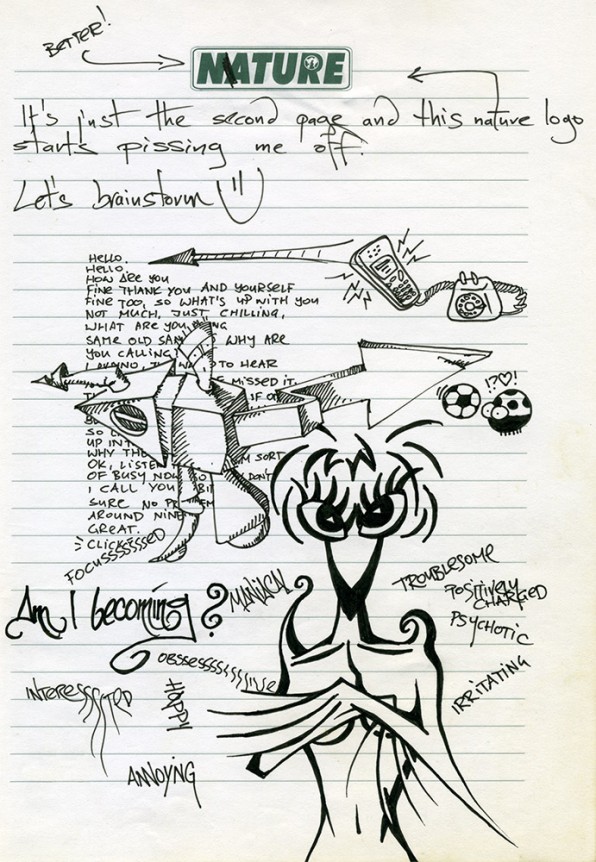 BETTER!
NATURE
It's just the second page and this nature logo
starts pissing me off.
Let's brainstorm
HELLO.
HELLO.
HOW ARE YOU
FINE THANK YOU AND YOURSELF
FINE TOO, SO WHAT'S UP WITH YOU
NOT MUCH, JUST CHILLING,
WHAT ARE YOU
SAME OLD WHY ARE
YOU CALLING
TO HEAR
MISSED IT.
IF
SO
UP
WHY
OK, LISTEN
OF BUSY NOW DON'T
I CALL YOU
SURE NO
AROUND NINE
GREAT.
CLICK
!?♡!
FOCUSSSSSSSED
MANIACAL
TROUBLESOME
POSITIVELY
CHARGED
PSYCHOTIC
Am I becoming?
OBSSESSSSSSIVE
IRRITATING
INTERESSSTED
HAPPY
ANNOYING